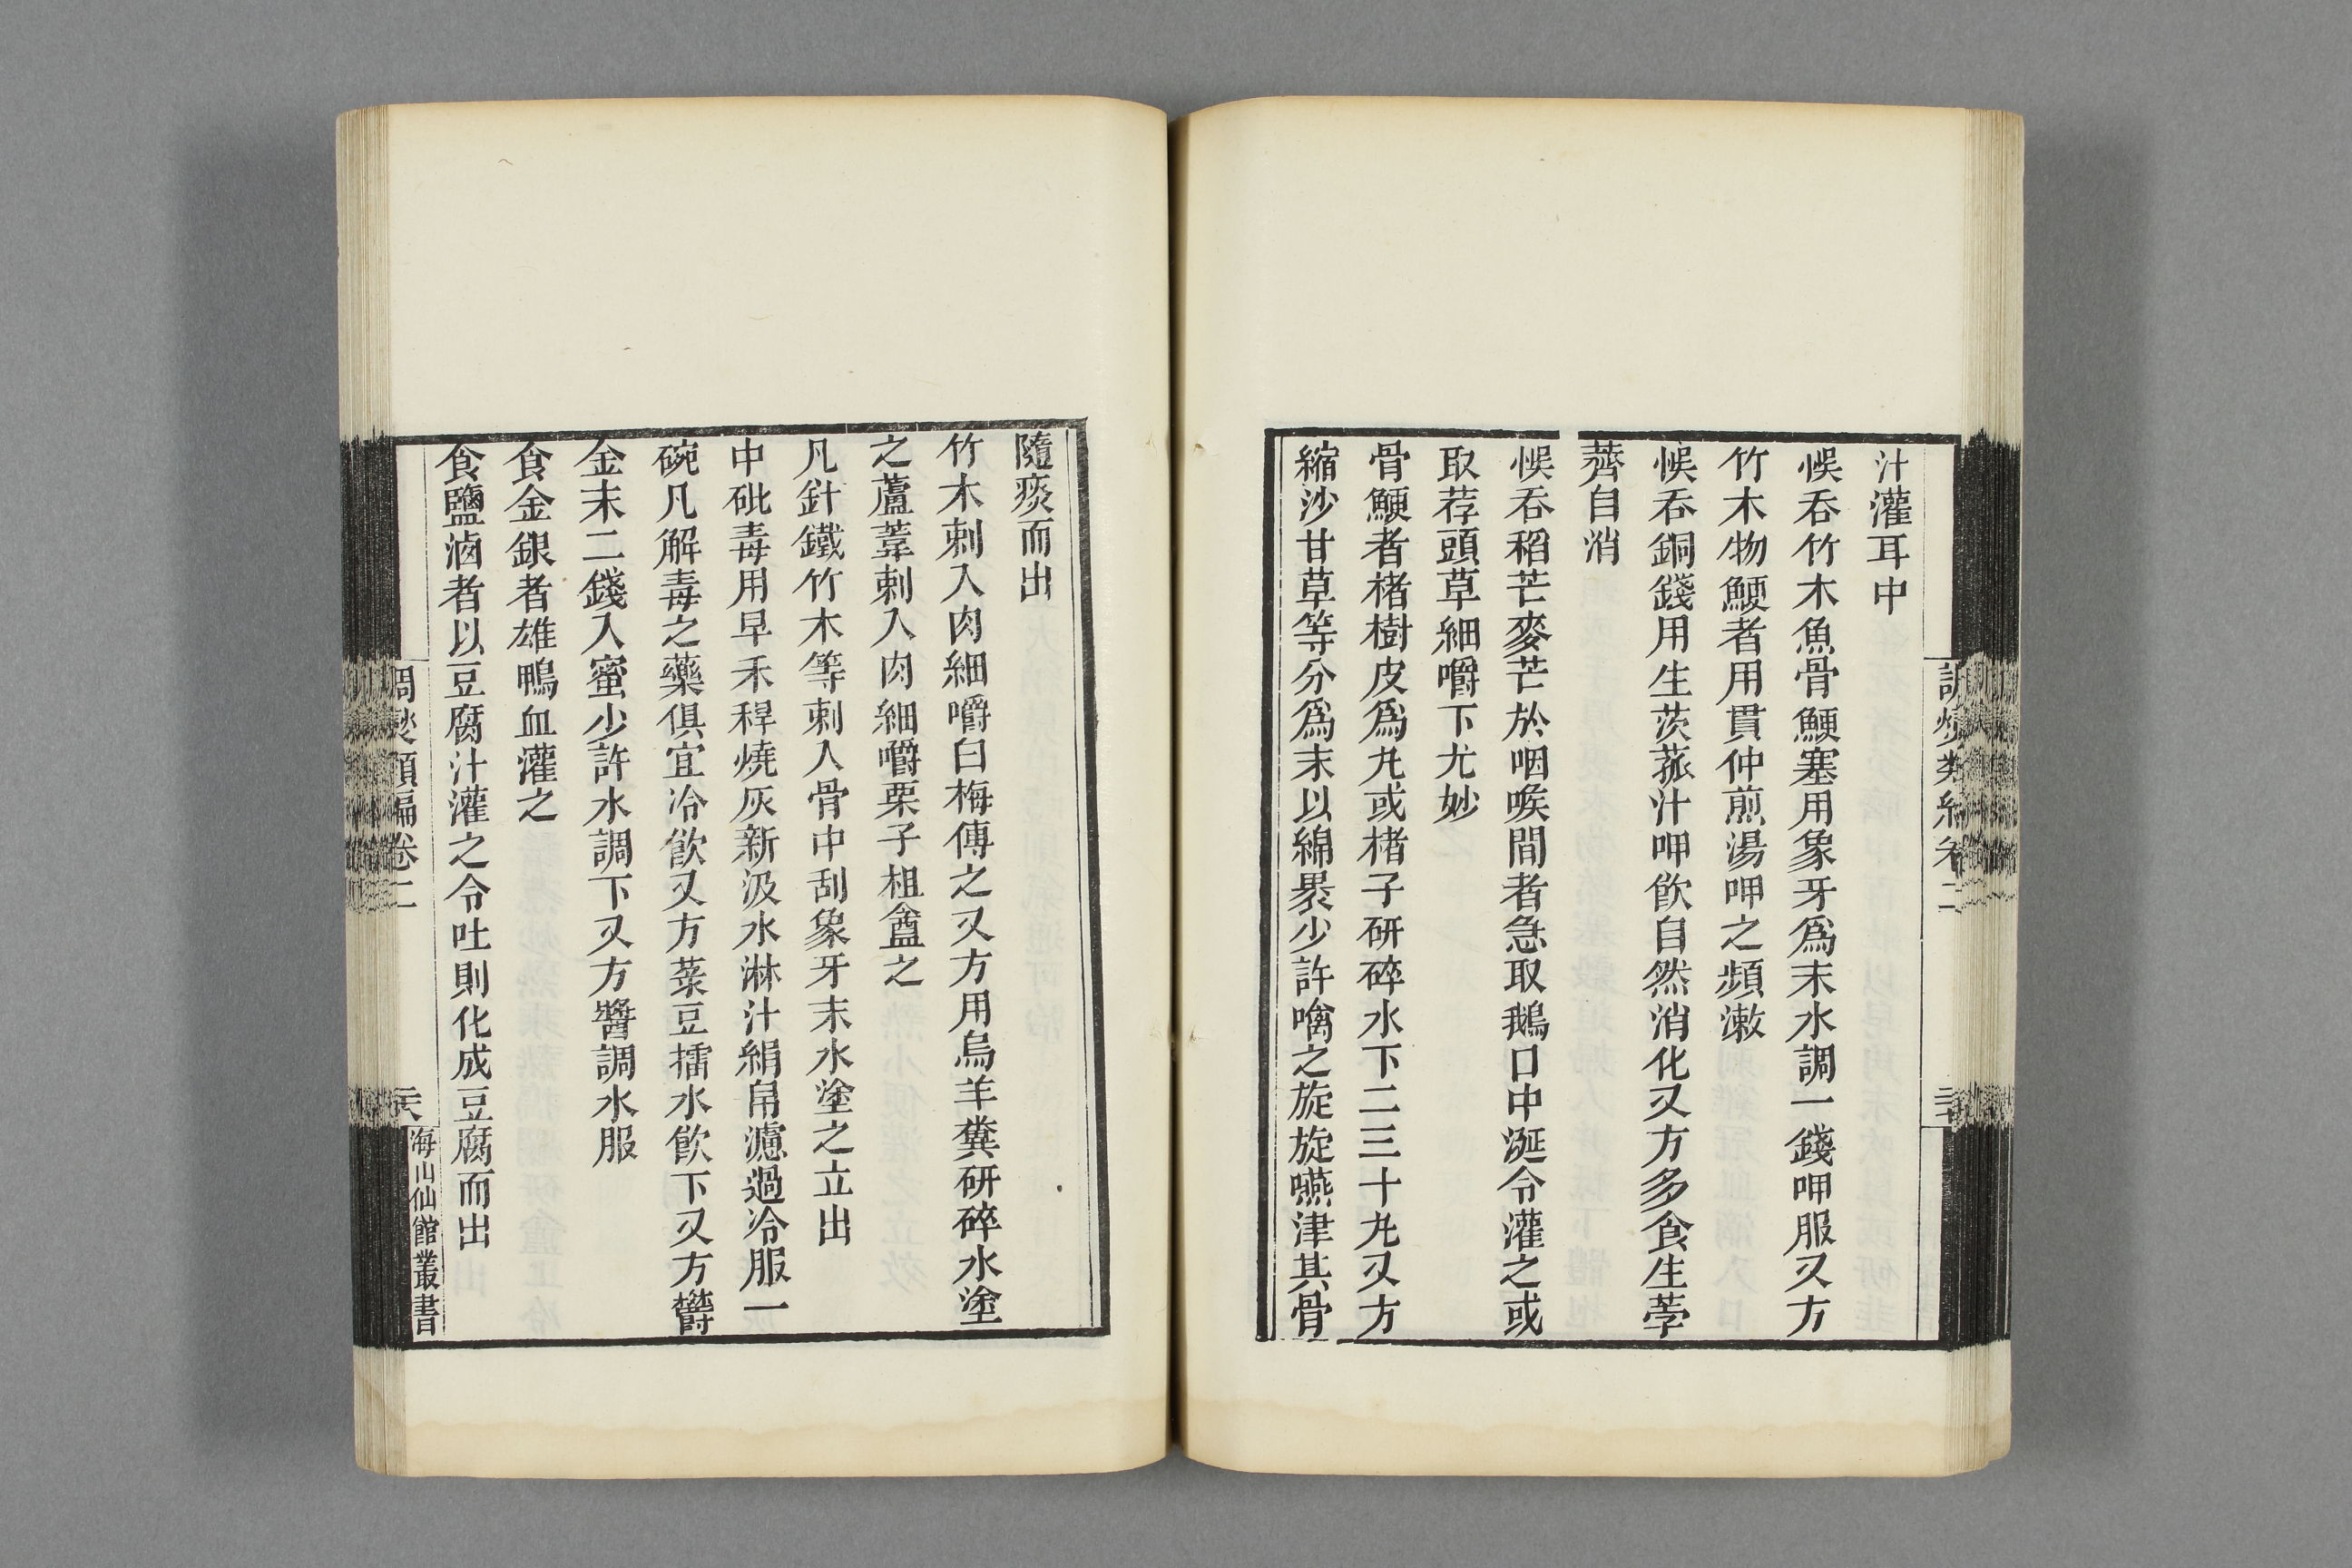 汁灌耳中
悞吞竹木魚骨鯁塞用象牙爲末水調一錢呷服又方
竹木物鯁者用貫仲煎湯呷之頻漱
悞吞銅錢用生茨菰汁呷飲自然消化又方多食生葧
薺自消
悞吞稻芒麥芒於咽喉間者急取鵝口中涎令灌之或
取荐頭草細嚼下尤妙
骨鯁者楮樹皮爲丸或楮子研碎水下二三十丸又方
縮沙甘草等分爲末以綿褁少許噙之旋旋嚥津其骨
隨痰而出
竹木刺入肉細嚼白梅傅之又方用烏羊糞研碎水塗
之蘆葦刺入肉細嚼栗子柤盦之
凡針鐵竹木等刺入骨中刮象牙末水塗之立出
中砒毒用早禾稈燒灰新汲水淋汁絹帛濾過冷服一
碗凡解毒之藥俱宜冷飲又方菉豆擂水飲下又方欝
金末二錢入蜜少許水調下又方醬調水服
食金銀者雄鴨血灌之
食鹽滷者以豆腐汁灌之令吐則化成豆腐而出
調燮類編卷二
海山仙館叢書